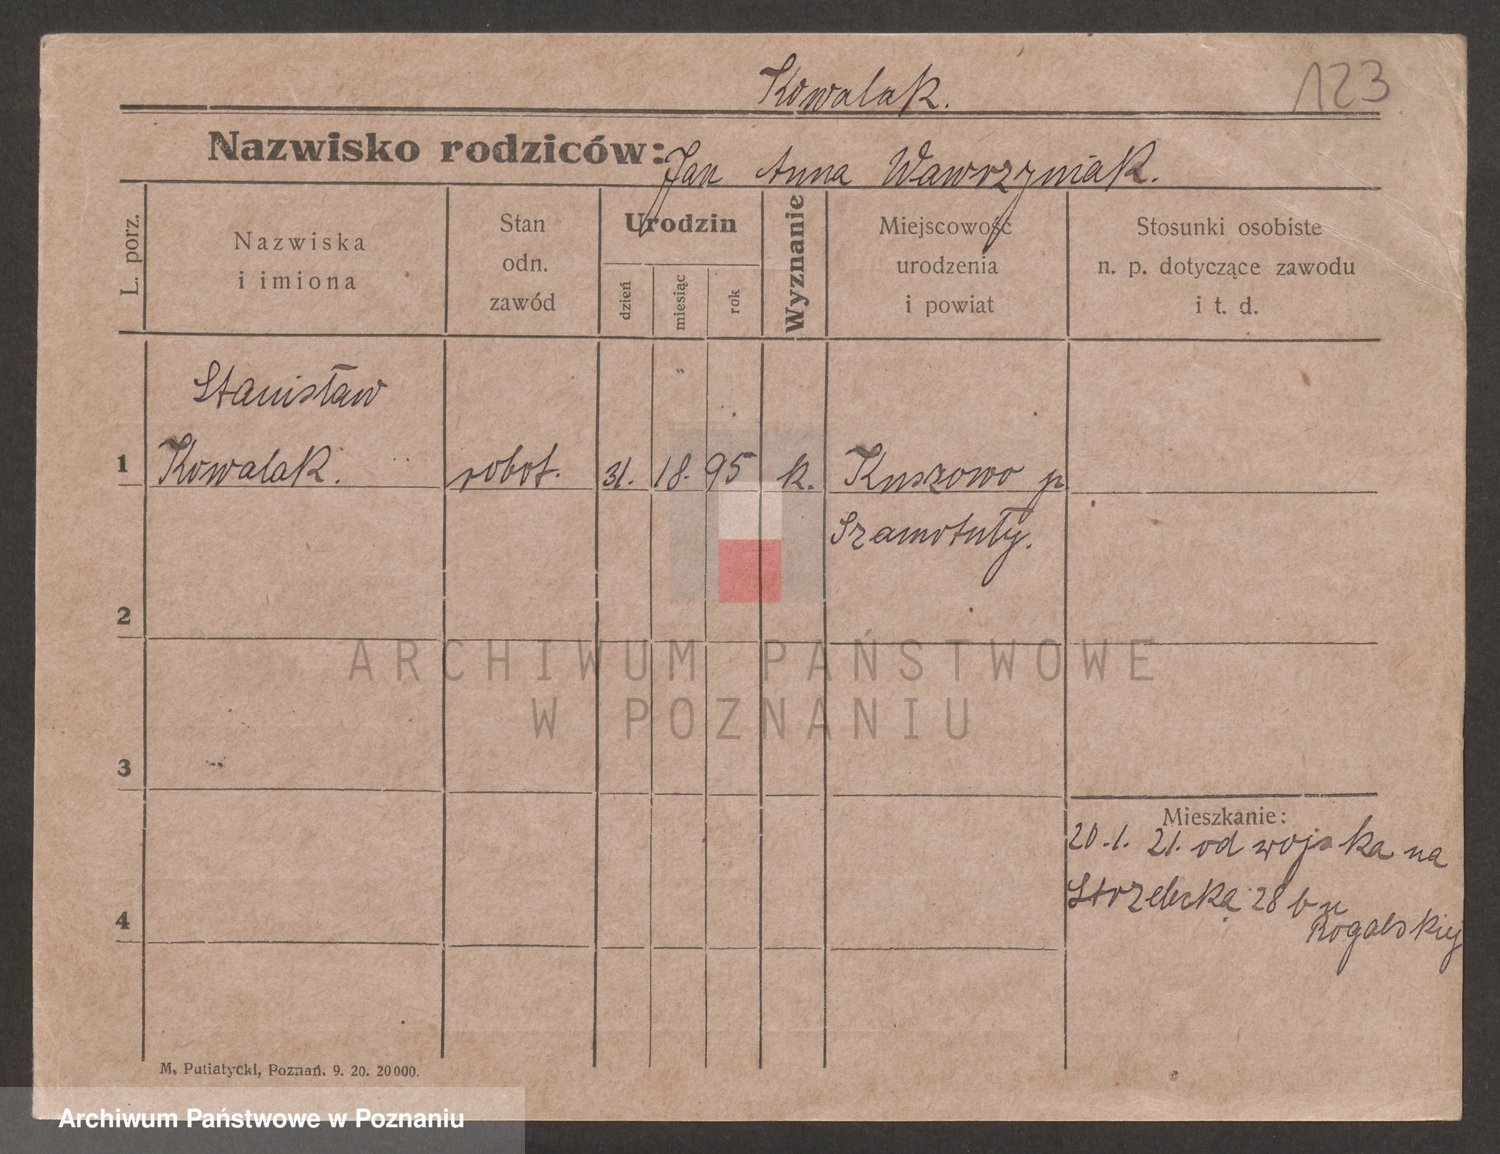 Kowalak.
123
Nazwisko rodziców: Jan Anna Wawrzyniak.
L. porz.
Nazwiska
i imiona
Stan
odn.
zawód
Urodzin
dzień
miesiąc
rok
Wyznanie
Miejscowość
urodzenia
i powiat
Stosunki osobiste
n. p. dotyczące zawodu
i t. d.
Stanisław
1 Kowalak. robot. 31. 18. 95 k. Kuszowo p
Szamotuły.
2
3
4
Mieszkanie:
20.1. 21. od wojska na
Strzelecką 28 b u
Rogalskiej
ARCHIWUM PAŃSTWOWE
W POZNANIU
M. Putiatycki, Poznań. 9. 20. 20000.
Archiwum Państwowe w Poznaniu